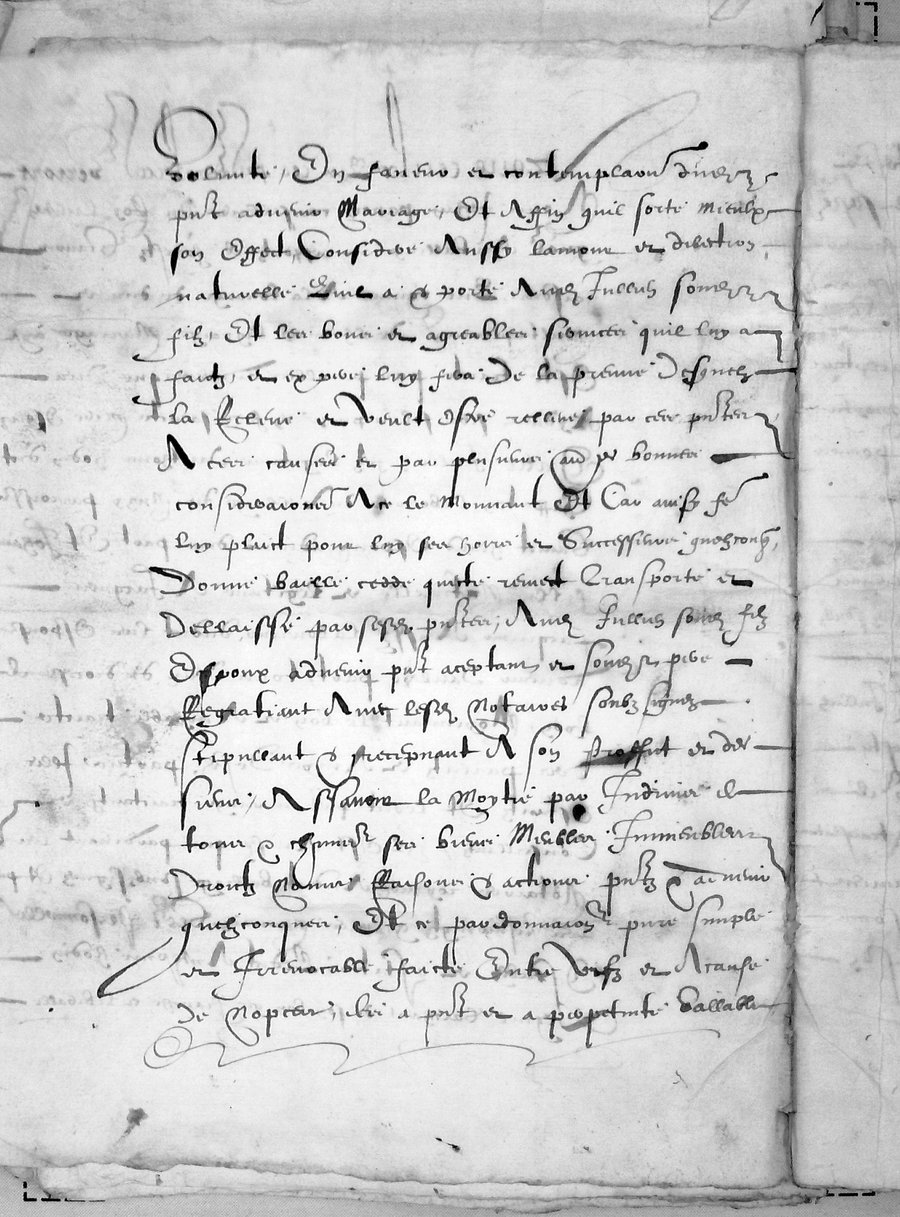 volunte, En faveur et contemplaon dud
pnt advenir Mariage, Et Affin quil sorte mieulx
son Effect, Considere Aussy lamour et dilection
naturelle Quil a & porte Aud Jullien sond
filz, Et les bons et agreables services quil luy a
faictz, et espere luy fera De la preuve Desquelz
la Releve et veult Estre relleve par ces pntes
A ces causes et par plusieurs au bonnes
consideraions A ce le Mouvant Et Car ainsy
luy plaict pour luy ses hoirs et Successeurs quelzconq
Donne baille cedde quicte remect Transporte et
Dellaisse par sesd pntes, Aud Jullien sond filz
Espoux advenir pnt aceptant et sond pere
Regratiant Avec lesd Notaires soubz signez
stipullant & recepvant A son proffict et des
siens, Assavoir la Moytie par Indivis de
tous & chascuns ses biens Meubles Immeubles
Droictz Noms Raisons & actions pntz & advenir
quelzconques, Et ce par donnaion pure simple
et Irrevocable faicte Entre vifz et A cause
de Nopces, des a pnt et a perpetuite vallable